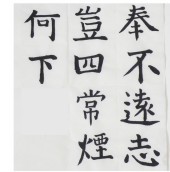 奉不遠志
豈四常煙
何下